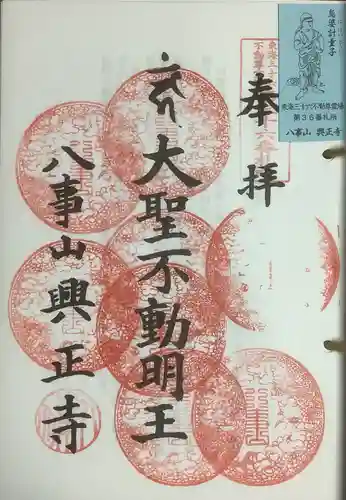 奉拝
大聖不動明王
八事山興正寺
烏婆計童子
東海三十六不動尊霊場
第36番札所
八事山 興正寺